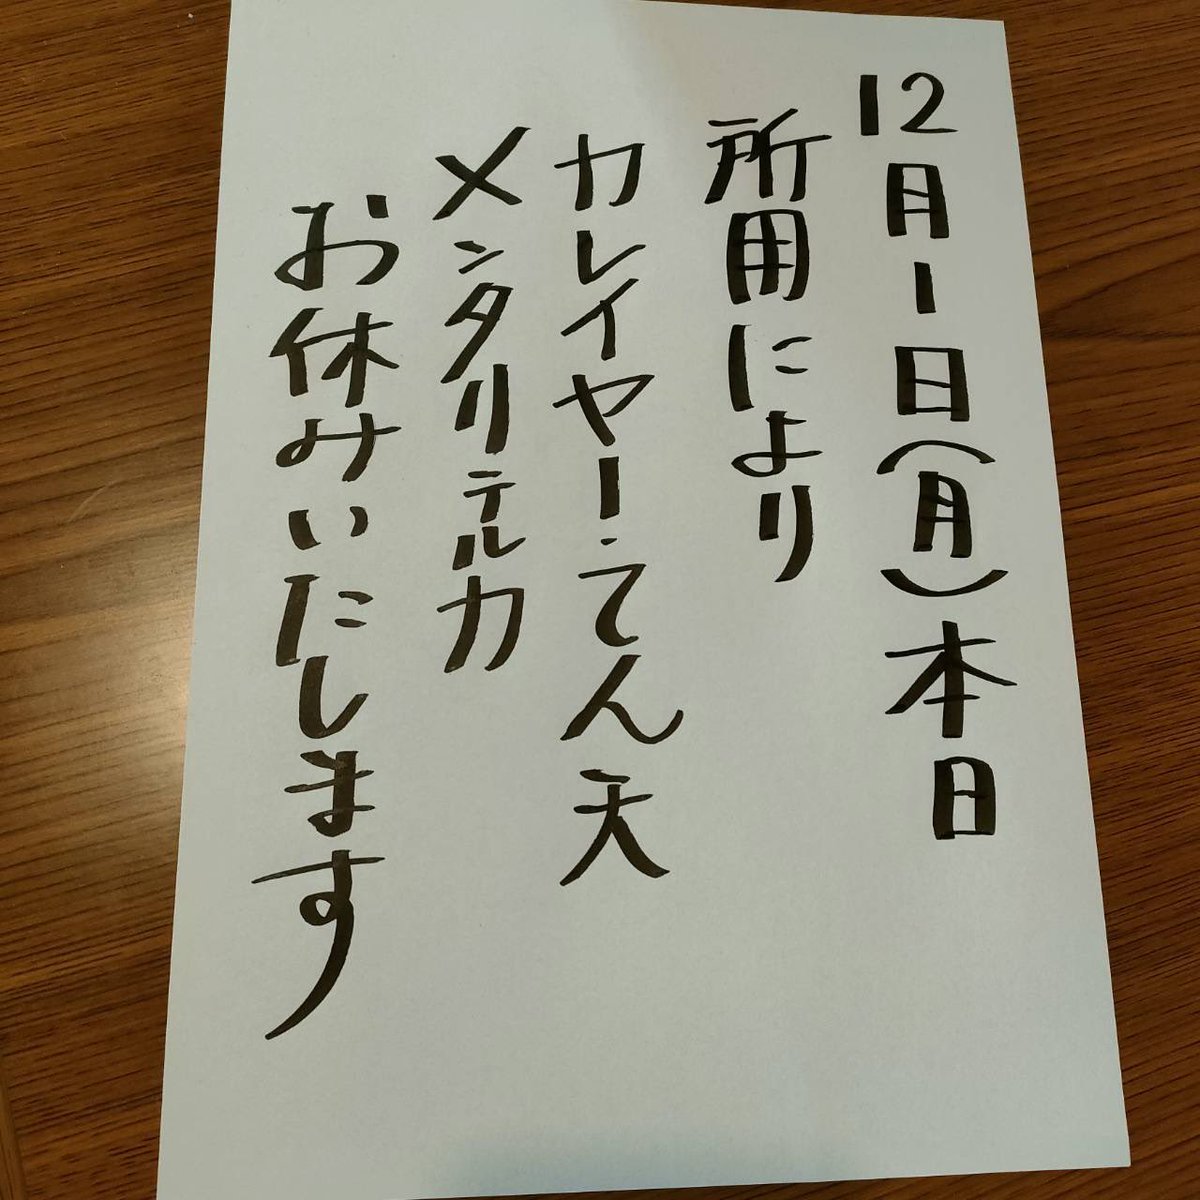 12月1日(月)本日
所用により
カレイヤー・てん天
メンタリテルカ
お休みいたします